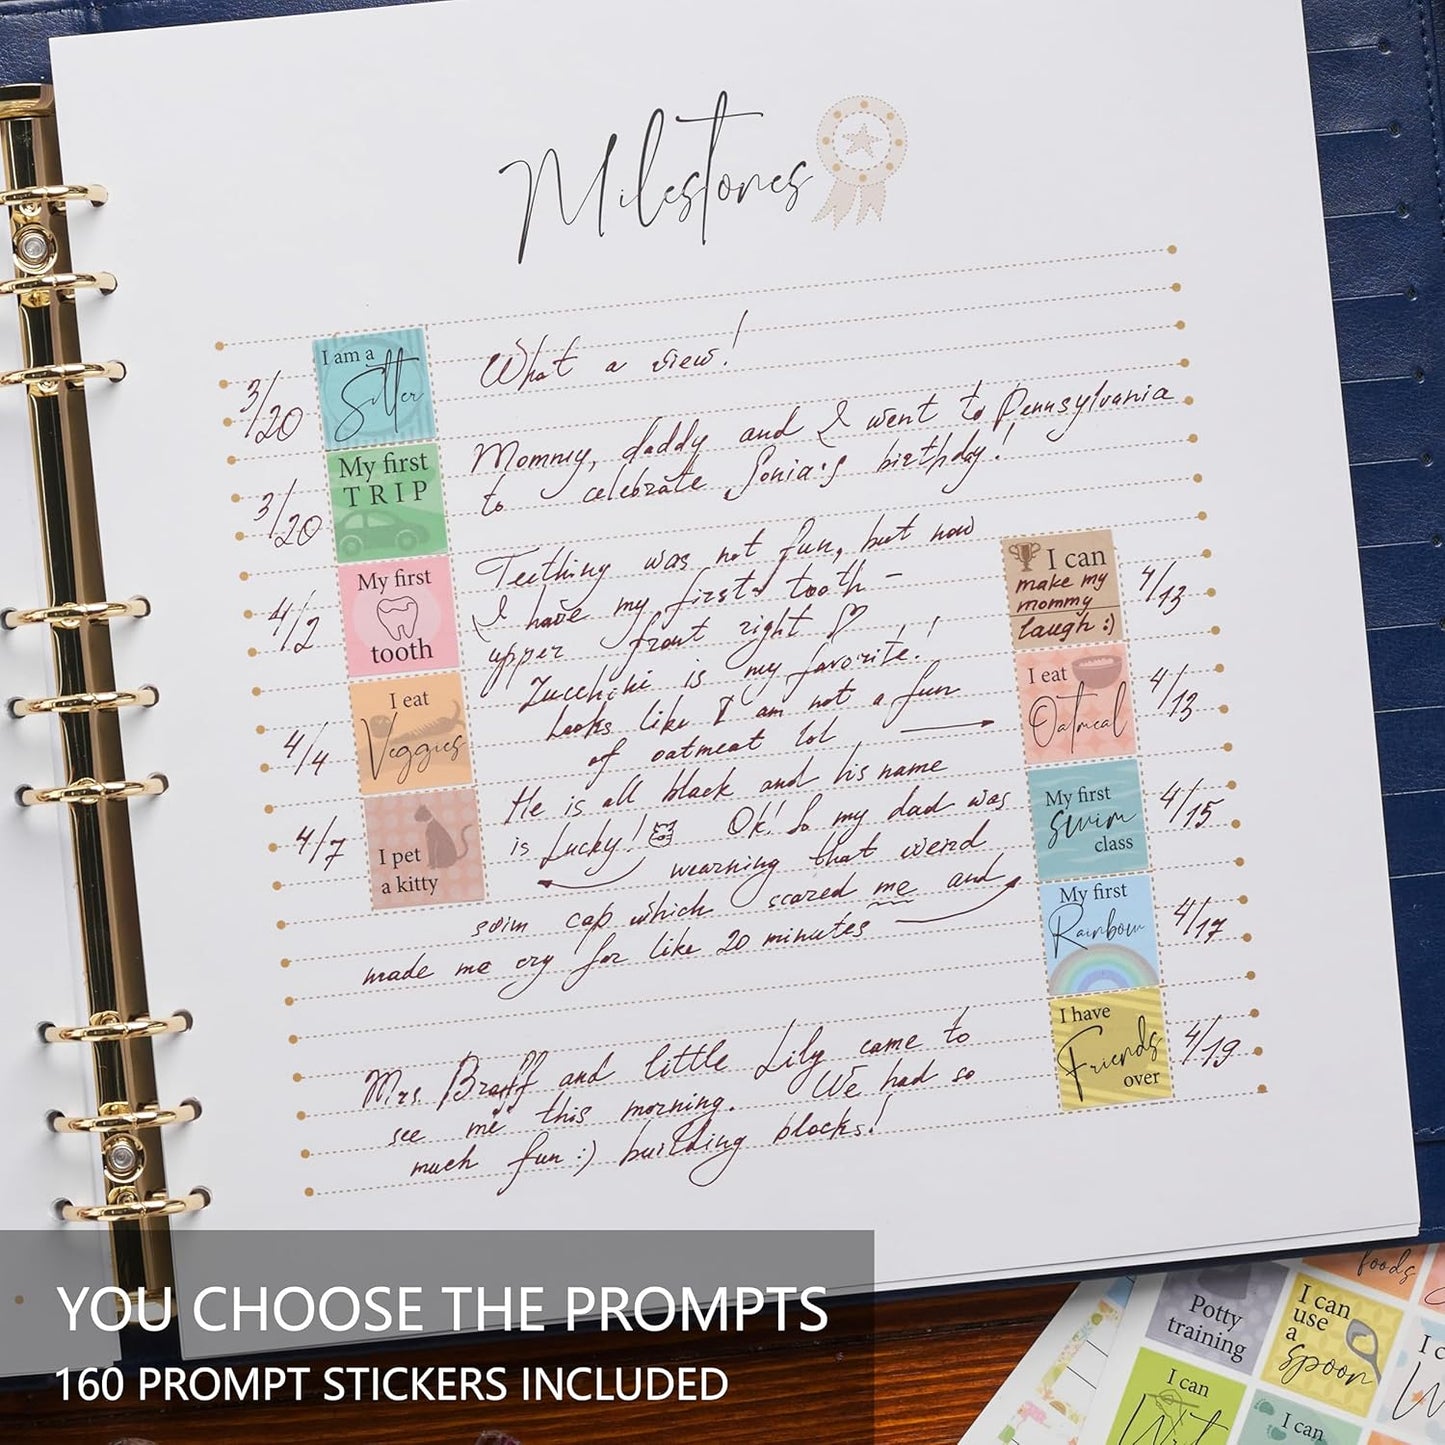 Milestones
I am a
Sitter
3/20
What a view!
My first
TRIP
3/20
Mommy, daddy and I went to Pennsylvania
to celebrate Sonia's birthday!
My first
tooth
4/2
Teething was not fun, but now
I have my first tooth –
upper front right ♡
I eat
Veggies
4/4
Zucchini is my favorite!
Looks like I am not a fun
of oatmeat lol
I pet
a kitty
4/7
He is all black and his name
is Lucky!
I can
make my
mommy
laugh :)
4/13
I eat
Oatmeal
4/13
My first
swim
class
4/15
Ok! So my dad was
wearning that weird
swim cap which scared me and
made me cry for like 20 minutes
My first
Rainbow
4/17
I have
Friends
over
4/19
Mrs. and little Lily came to
see me this morning. We had so
much fun :) building blocks!
foods
Potty
training
I can
use
a
spoon
I can
I can
YOU CHOOSE THE PROMPTS
160 PROMPT STICKERS INCLUDED